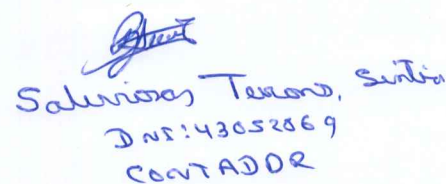 Salvinoas Terrono, Sintia
DNI: 43052069
CONTADOR